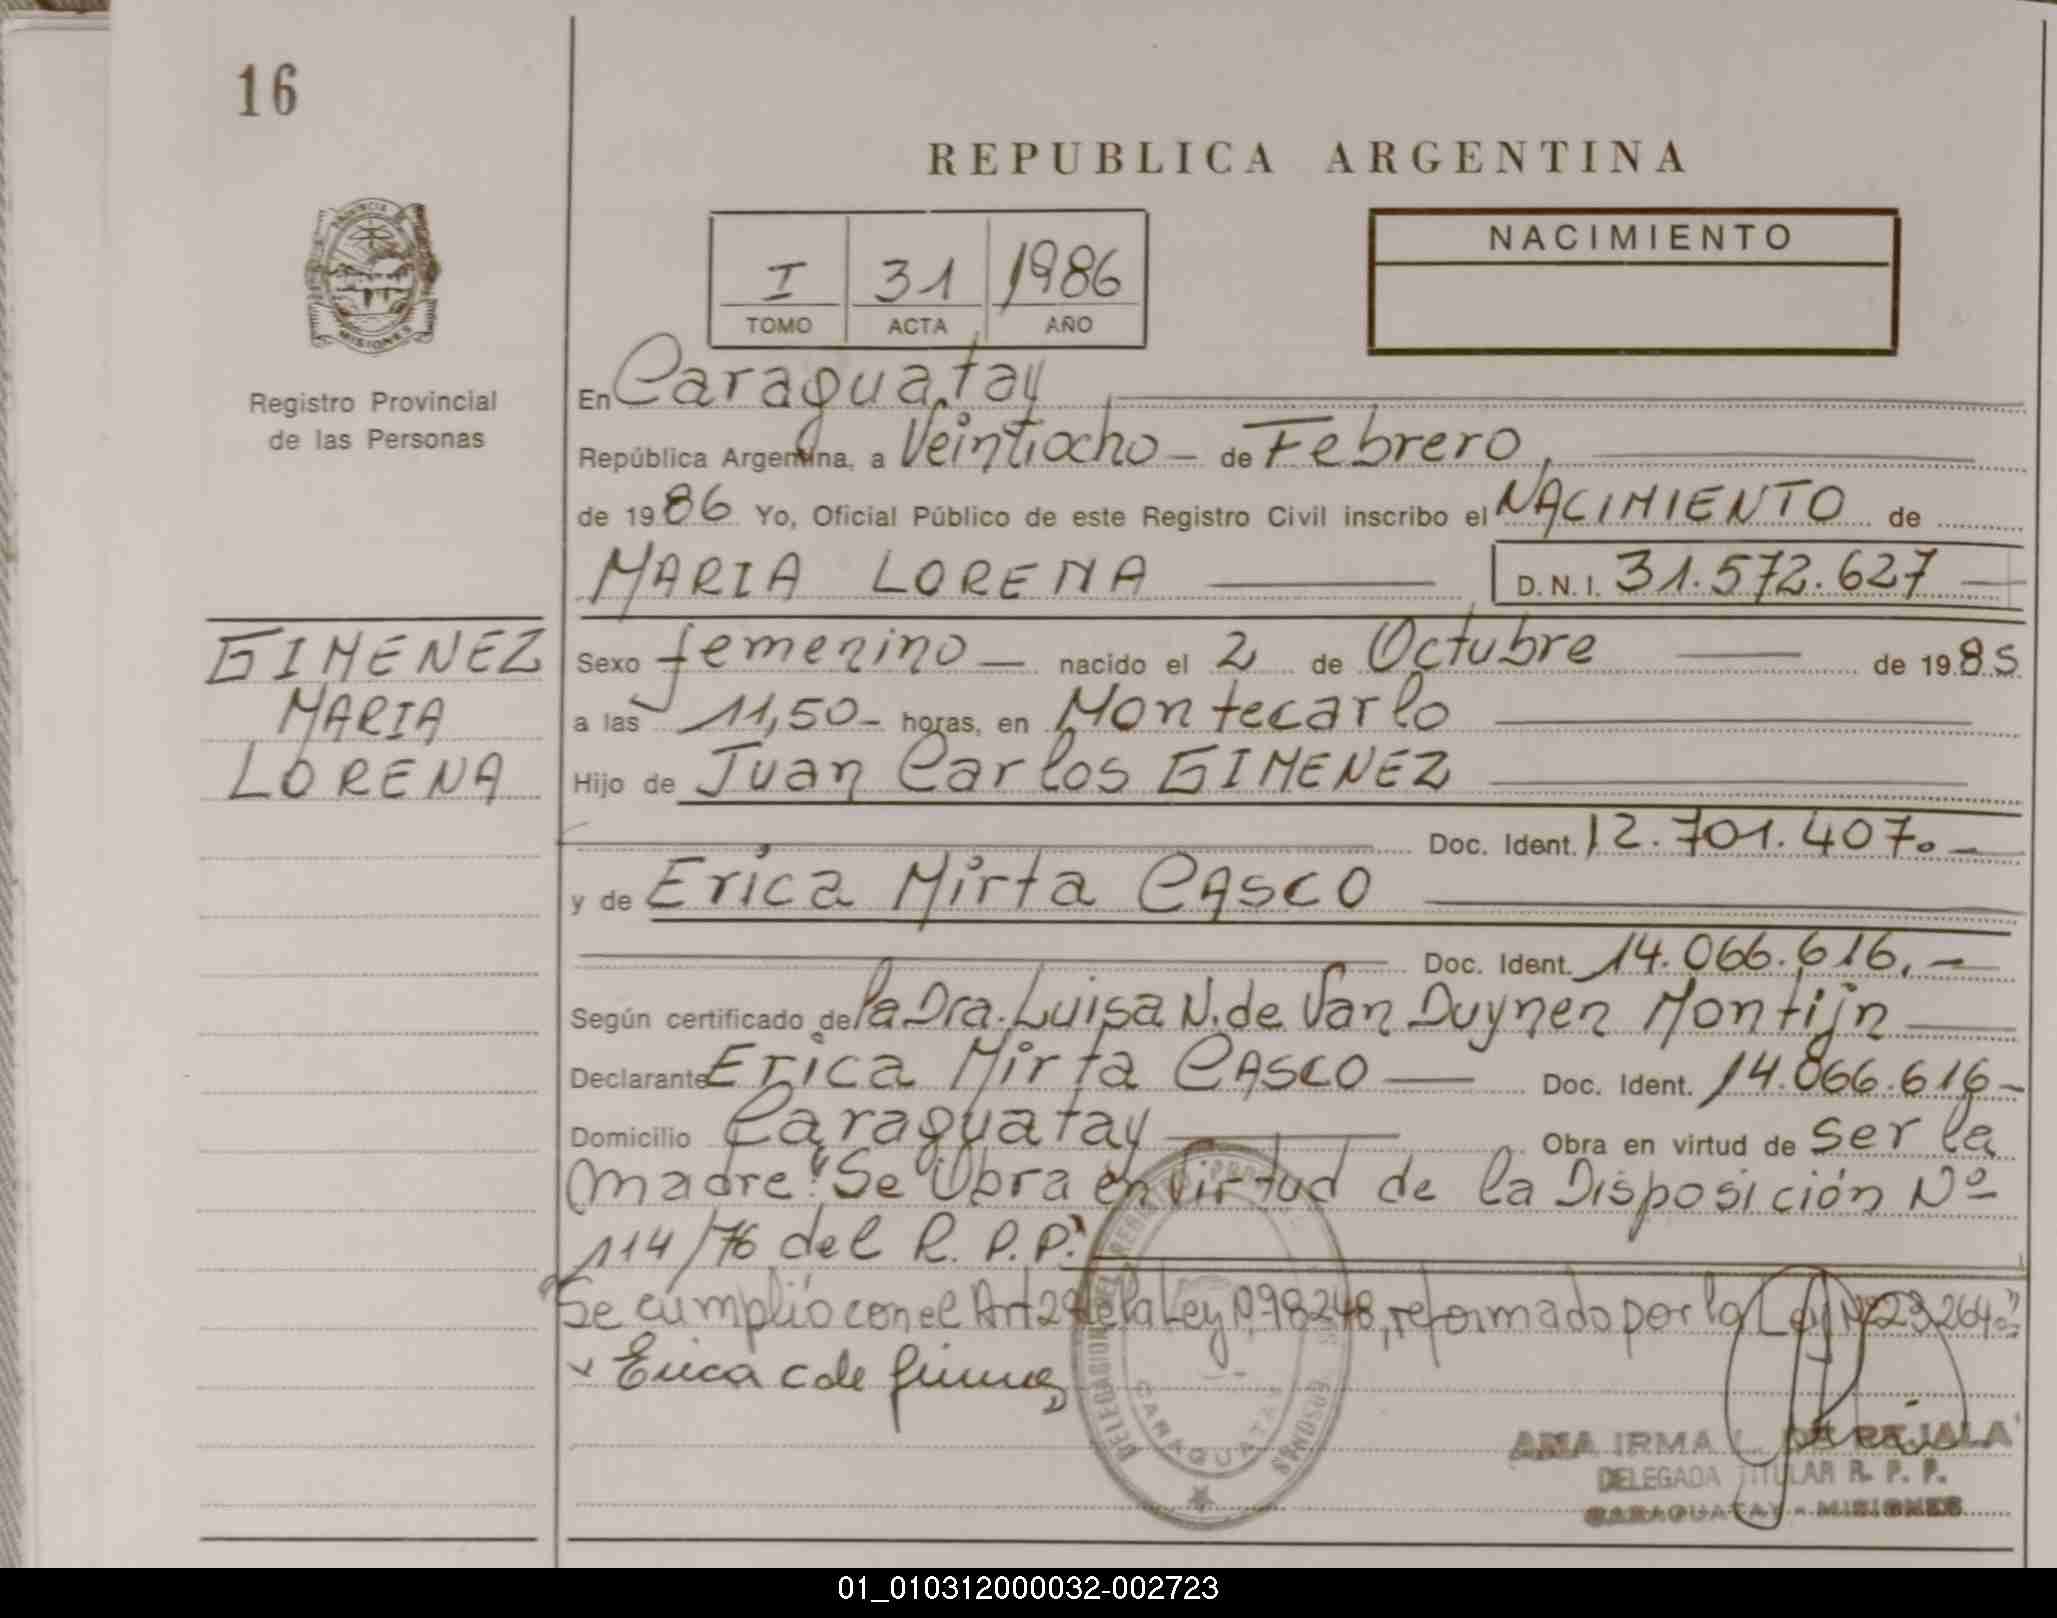 16
REPUBLICA ARGENTINA
NACIMIENTO
I 31 1986
TOMO ACTA AÑO
PROVINCIA DE
MISIONES
Registro Provincial
de las Personas
En Caraguatay
República Argentina, a Veintiocho - de Febrero,
de 1986 Yo, Oficial Público de este Registro Civil inscribo el NACIMIENTO de
MARIA LORENA D.N.I. 31.572.627
GIMENEZ
MARIA
LORENA
Sexo femenino - nacido el 2 de Octubre de 1985
a las 11,50- horas, en Montecarlo
Hijo de Juan Carlos GIMENEZ
Doc. Ident. 12.701.407.-
y de Erica Mirta CASCO
Doc. Ident. 14.066.616.-
Según certificado de la Dra. Luisa N. de Van Duynen Montijn
Declarante Erica Mirta CASCO Doc. Ident. 14.066.616-
Domicilio Caraguatay Obra en virtud de ser la
madre. "Se Obra en Virtud de la Disposición Nº
114/76 del R.P.P."
"Se cumplió con el Art 2º de la Ley Nº 18248, reformado por la Ley Nº 23264."
Erica C de Gimenez
CARAGUATAY
MISIONES
ANA IRMA L. DE
DELEGADA TITULAR R. P. P.
CARAGUATAY - MISIONES
01_010312000032-002723